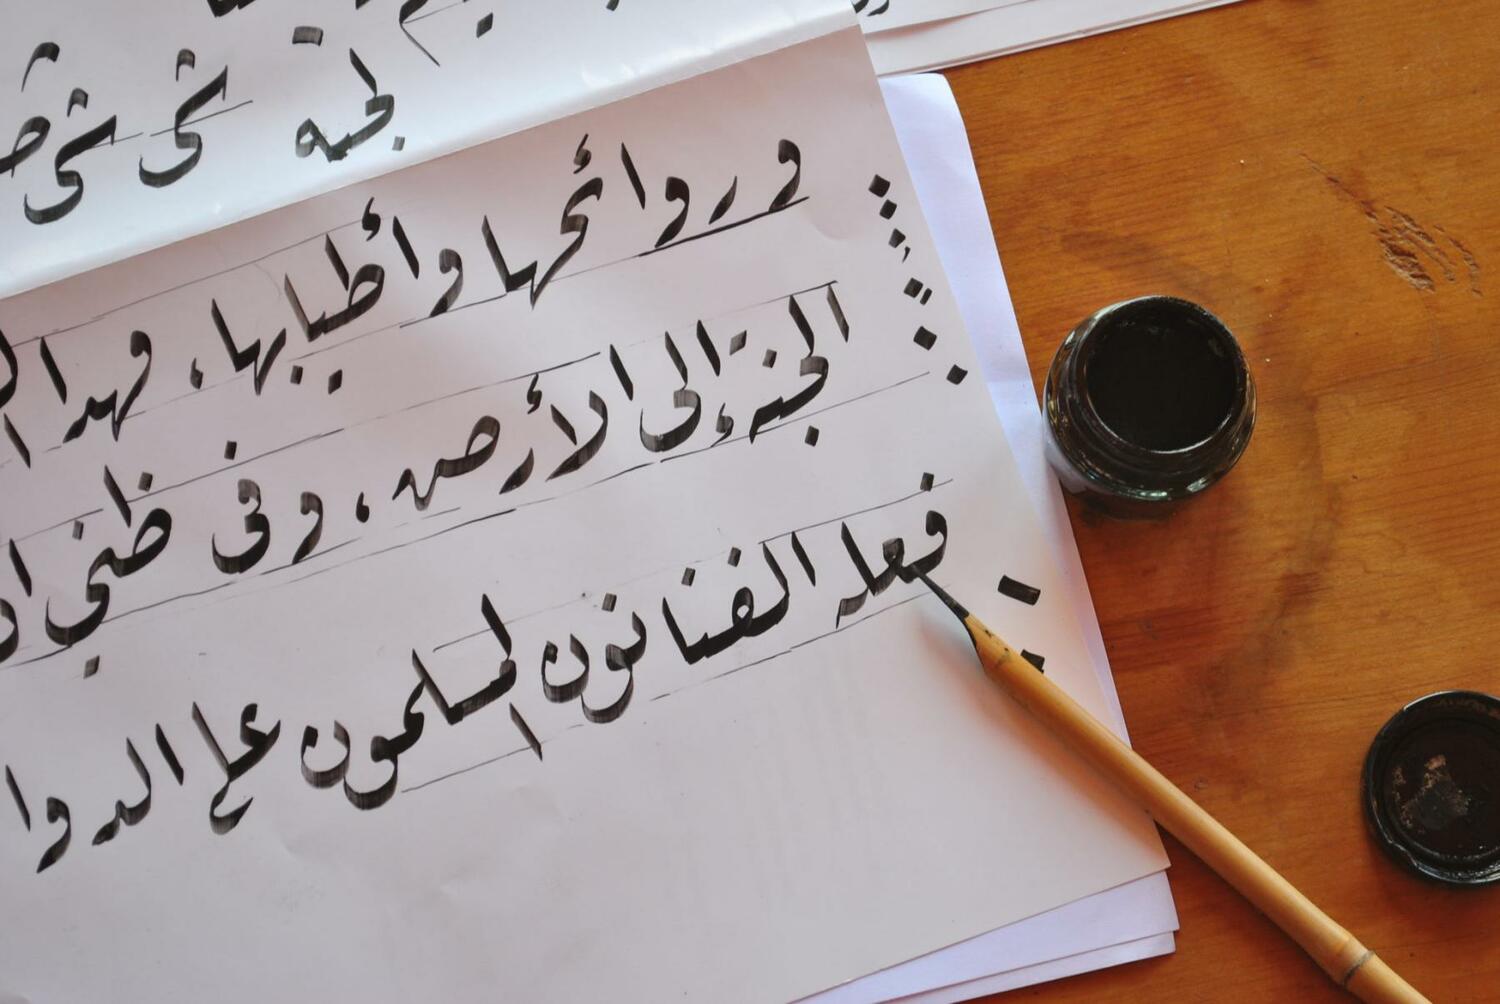 لجنه شى شى
وروائحها وأطيابها، فهذا
الجنة إلى الأرض، وفي ظني
فعله الفنانون المسلمون على الدوا